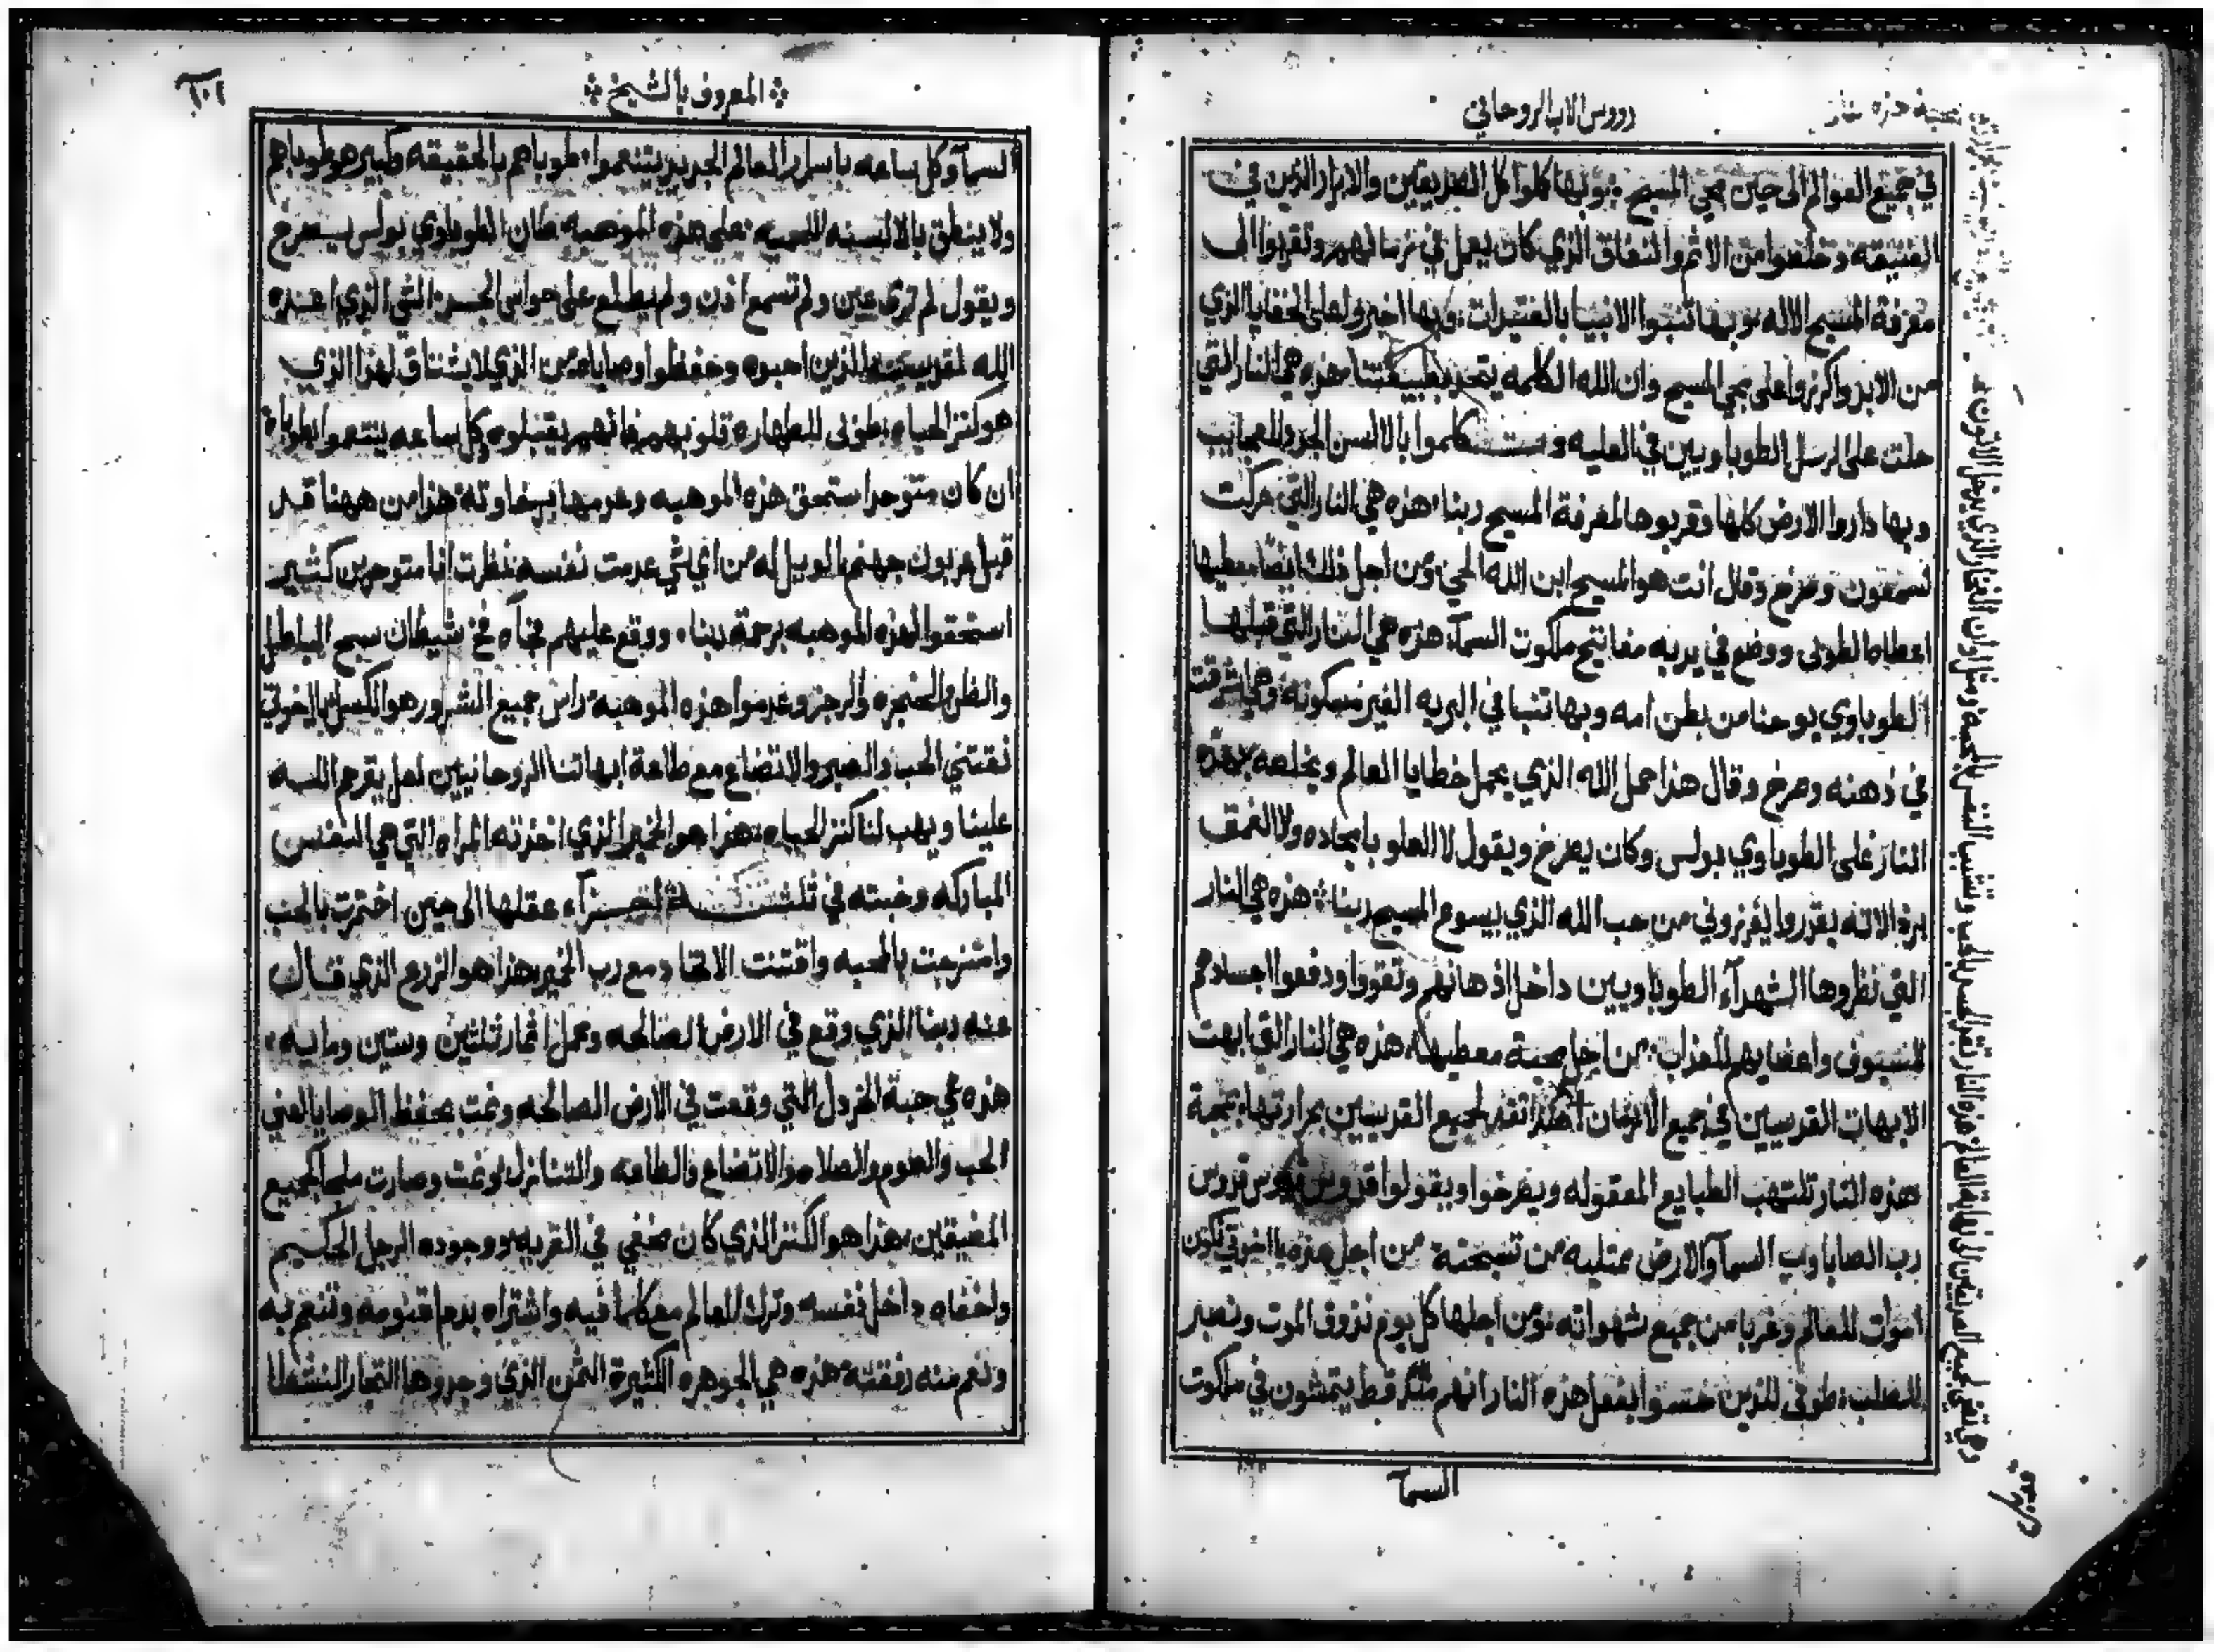 رووس الاب الروحاني
في جميع العوالم الى حين مجي المسيح وبها كلوا كل الصديقين والابرار الذين في
العتيقه وخلصوا من الاثم والنفاق الذي كان يعمل في زمانهم وتقربوا الى
معرفة المسيح الاله وبها تنبوا الانبيا بالعتيدات وبها اخبروا على الخفايا الذي
من الابد واكرزوا على مجي المسيح وان الله الكلمه يتحد بطبيعتنا هذه هي النار التي
حلت على الرسل الطوباويين في العليه وتكلموا بالالسن الجدد العجايب
وبها داروا الارض كلها وقربوها لمعرفة المسيح ربنا هذه هي النار التي حركت
لسمعون وصرخ وقال انت هو المسيح ابن الله الحي ومن اجل ذلك ايضا معطيها
اعطاه الطوبى ووضع في يديه مفاتيح ملكوت السما هذه هي النار التي قبلها
الطوباوي يوحنا من بطن امه وبها تنبا في البريه الغير مسكونه وهي اشرقت
في ذهنه وصرخ وقال هذا حمل الله الذي يحمل خطايا العالم وبخلعه بهذه
النار على الطوباوي بولس وكان يصرخ ويقول لا العلو بامجاده ولا العمق
يقدروا يفرزوني من حب الله الذي بيسوع المسيح ربنا هذه هي النار
التي نظروها الشهدآء الطوباويين داخل اذهانهم وتقووا ودفعوا اجسادهم
للسيوف واعضايهم للعذاب من اجل محبة معطيها هذه هي النار التي ابهت
الابهات القديسين في جميع الازمان لجميع القديسين بحرارتها بمحبة
هذه النار تلتهب الطبايع المعقوله ويصرخوا ويقولوا قدوس قدوس قدوس
رب الصاباوت السمآ والارض ممتليه من تسبحته من اجل هذه يا اخوتي نكون
اموات للعالم وغربا من جميع شهواته ومن اجلها كل يوم نذوق الموت ونصبر
للصلب طوبى للذين حسوا بفعل هذه النار انهم قط يتمشون في ملكوت
السمآ
المعروف بالشيخ
السمآ وكل ساعه باسرار العالم الجديد يتنعموا طوباهم بالحقيقه وكبير هو طوباهم
ولا ينطق بالالسنه اللحميه على هذه الموهبه كان الطوباوي بولس يصرخ
ويقول لم ترى عين ولم تسمع اذن ولم يطلع على حواس الجسد الشي الذي اعده
الله لقديسيه الذين احبوه وحفظوا وصاياه من الذي لا يشتاق لهذا الذي
هو كنز الحياه طوبى للطهاره قلوبهم فانهم يقبلوه كل ساعه يتنعموا بطوباه
ان كان متوحد استحق هذه الموهبه وعدمها هذا من ههنا قد
قبل عربون جهنم الويل له من اي شي عدمت نفسه نظرت انا متوحدين كثير
استحقوا لهذه الموهبه برحمة ربنا ووقع عليهم فجآه فخ شيطان سبح الباطل
والظن والحنجره والرجز وعدموا هذه الموهبه راس جميع الشرور هو الكسل يا اخوتي
نقتني الحب والصبر والاتضاع مع طاعة ابهاتنا الروحانيين لعل يترحم الله
علينا ويهب لنا كنز الحياه هذا هو الخمير الذي اخذته المراه التي هي النفس
المباركه وخبته في تلت اجزآء عقلها الى حين اختمرت بالحب
وامتزجت بالمحبه واقتنت الاتحاد مع رب الخمير هذا هو الزرع الذي قال
عنه ربنا الذي وقع في الارض الصالحه وعمل اثمار ثلثين وستين ومايه
هذه هي حبة الخردل التي وقعت في الارض الصالحه ونمت بحفظ الوصايا اعني
الحب والصوم والصلاه والاتضاع والطاعه والتنازل ونمت وصارت ملجا لجميع
المضيقين هذا هو الكنز الذي كان مخفي في القريه ووجوده الرجل الحكيم
واخفاه داخل نفسه وترك العالم مع كلما فيه واشتراه بدم اقنومه وتنعم به
ونعم منه رفقته هذه هي الجوهره الكثيرة الثمن الذي وجدوها التجار النشطا